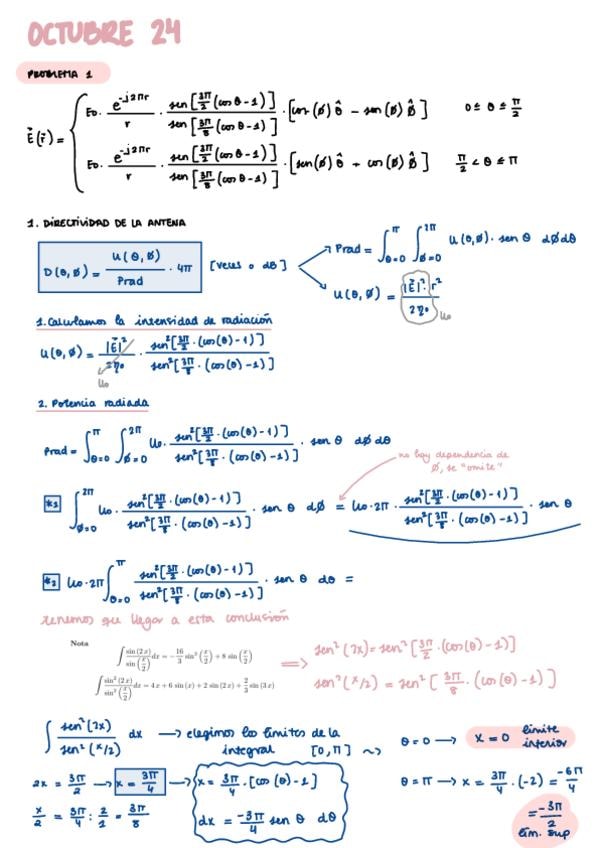 OCTUBRE 24
PROBLEMA 1
E⃗(r⃗) = { E₀ · e^(-j2πr)/r · sen[3π/2 (cos θ - 1)] / sen[3π/8 (cos θ - 1)] · [cos(ø) θ̂ - sen(ø) ø̂] 0 ≤ θ ≤ π/2
E₀ · e^(-j2πr)/r · sen[3π/2 (cos θ - 1)] / sen[3π/8 (cos θ - 1)] · [sen(ø) θ̂ + cos(ø) ø̂] π/2 < θ ≤ π
1. DIRECTIVIDAD DE LA ANTENA
D(θ, ø) = U(θ, ø) / Prad · 4π [veces o dB]
Prad = ∫_{θ=0}^{π} ∫_{ø=0}^{2π} U(θ, ø) · sen θ dø dθ
U(θ, ø) = |E⃗|² · r² / 2η₀ U₀
1. Calculamos la intensidad de radiación
U(θ, ø) = |E⃗|² / 2η₀ · sen²[3π/2 · (cos(θ) - 1)] / sen²[3π/8 · (cos(θ) - 1)]
U₀
2. Potencia radiada
Prad = ∫_{θ=0}^{π} ∫_{ø=0}^{2π} U₀ · sen²[3π/2 · (cos(θ) - 1)] / sen²[3π/8 · (cos(θ) - 1)] · sen θ dø dθ
no hay dependencia de
ø, se "omite"
*1 ∫_{ø=0}^{2π} U₀ · sen²[3π/2 · (cos(θ) - 1)] / sen²[3π/8 · (cos(θ) - 1)] · sen θ dø = U₀ · 2π · sen²[3π/2 · (cos(θ) - 1)] / sen²[3π/8 · (cos(θ) - 1)] · sen θ
*2 U₀ · 2π ∫_{θ=0}^{π} sen²[3π/2 · (cos(θ) - 1)] / sen²[3π/8 · (cos(θ) - 1)] · sen θ dθ =
tenemos que llegar a esta conclusión
Nota
∫ sin(2x) / sin(x/2) dx = -16/3 sin³(x/2) + 8 sin(x/2)
∫ sin²(2x) / sin²(x/2) dx = 4x + 6 sin(x) + 2 sin(2x) + 2/3 sin(3x)
⟹ sen²(2x) = sen²[3π/2 · (cos(θ) - 1)]
sen²(x/2) = sen²[3π/8 · (cos(θ) - 1)]
∫ sen²(2x) / sen²(x/2) dx → elegimos los límites de la
integral [0, π] ⤳
θ = 0 → x = 0 límite
inferior
2x = 3π/2 → x = 3π/4 → x = 3π/4 · [cos(θ) - 1]
x/2 = 3π/4 : 2/1 = 3π/8
dx = -3π/4 sen θ dθ
θ = π → x = 3π/4 · (-2) = -6π/4
= -3π/2
lím. sup